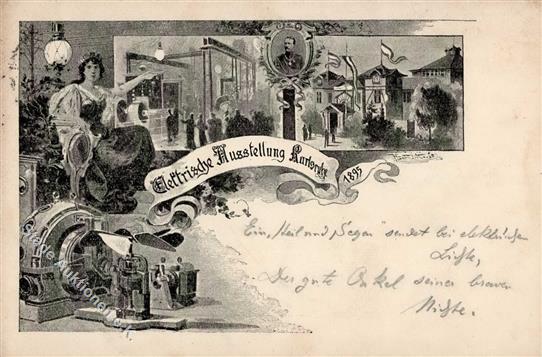 Elektrische Ausstellung Karlsruhe
1895
Ein „Heil und Segen" sendet bei elektrischem
Lichte,
Der gute Onkel seiner braven
Nichte.